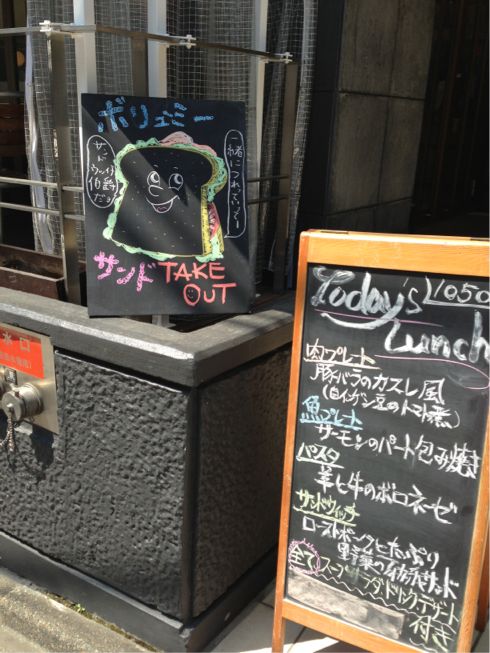 ボリュミー
サンド
ウィッチ
伯爵
だよ
一緒につれていって〜
サンド TAKE
OUT
水口
Today's 1050
Lunch
肉プレート
豚バラのカスレ風
(白インゲン豆のトマト煮)
魚プレート
サーモンのパート包み焼き
パスタ
羊と牛のボロネーゼ
サンドウィッチ
ローストポークとたっぷり
野菜の
サンド
全て スープ、サラダ、ドリンク、デザート
付き